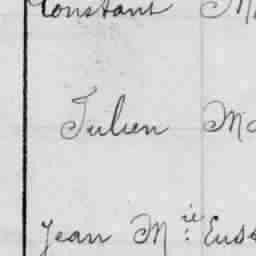 Constant M
Julien Ma
Jean M.ie Euds